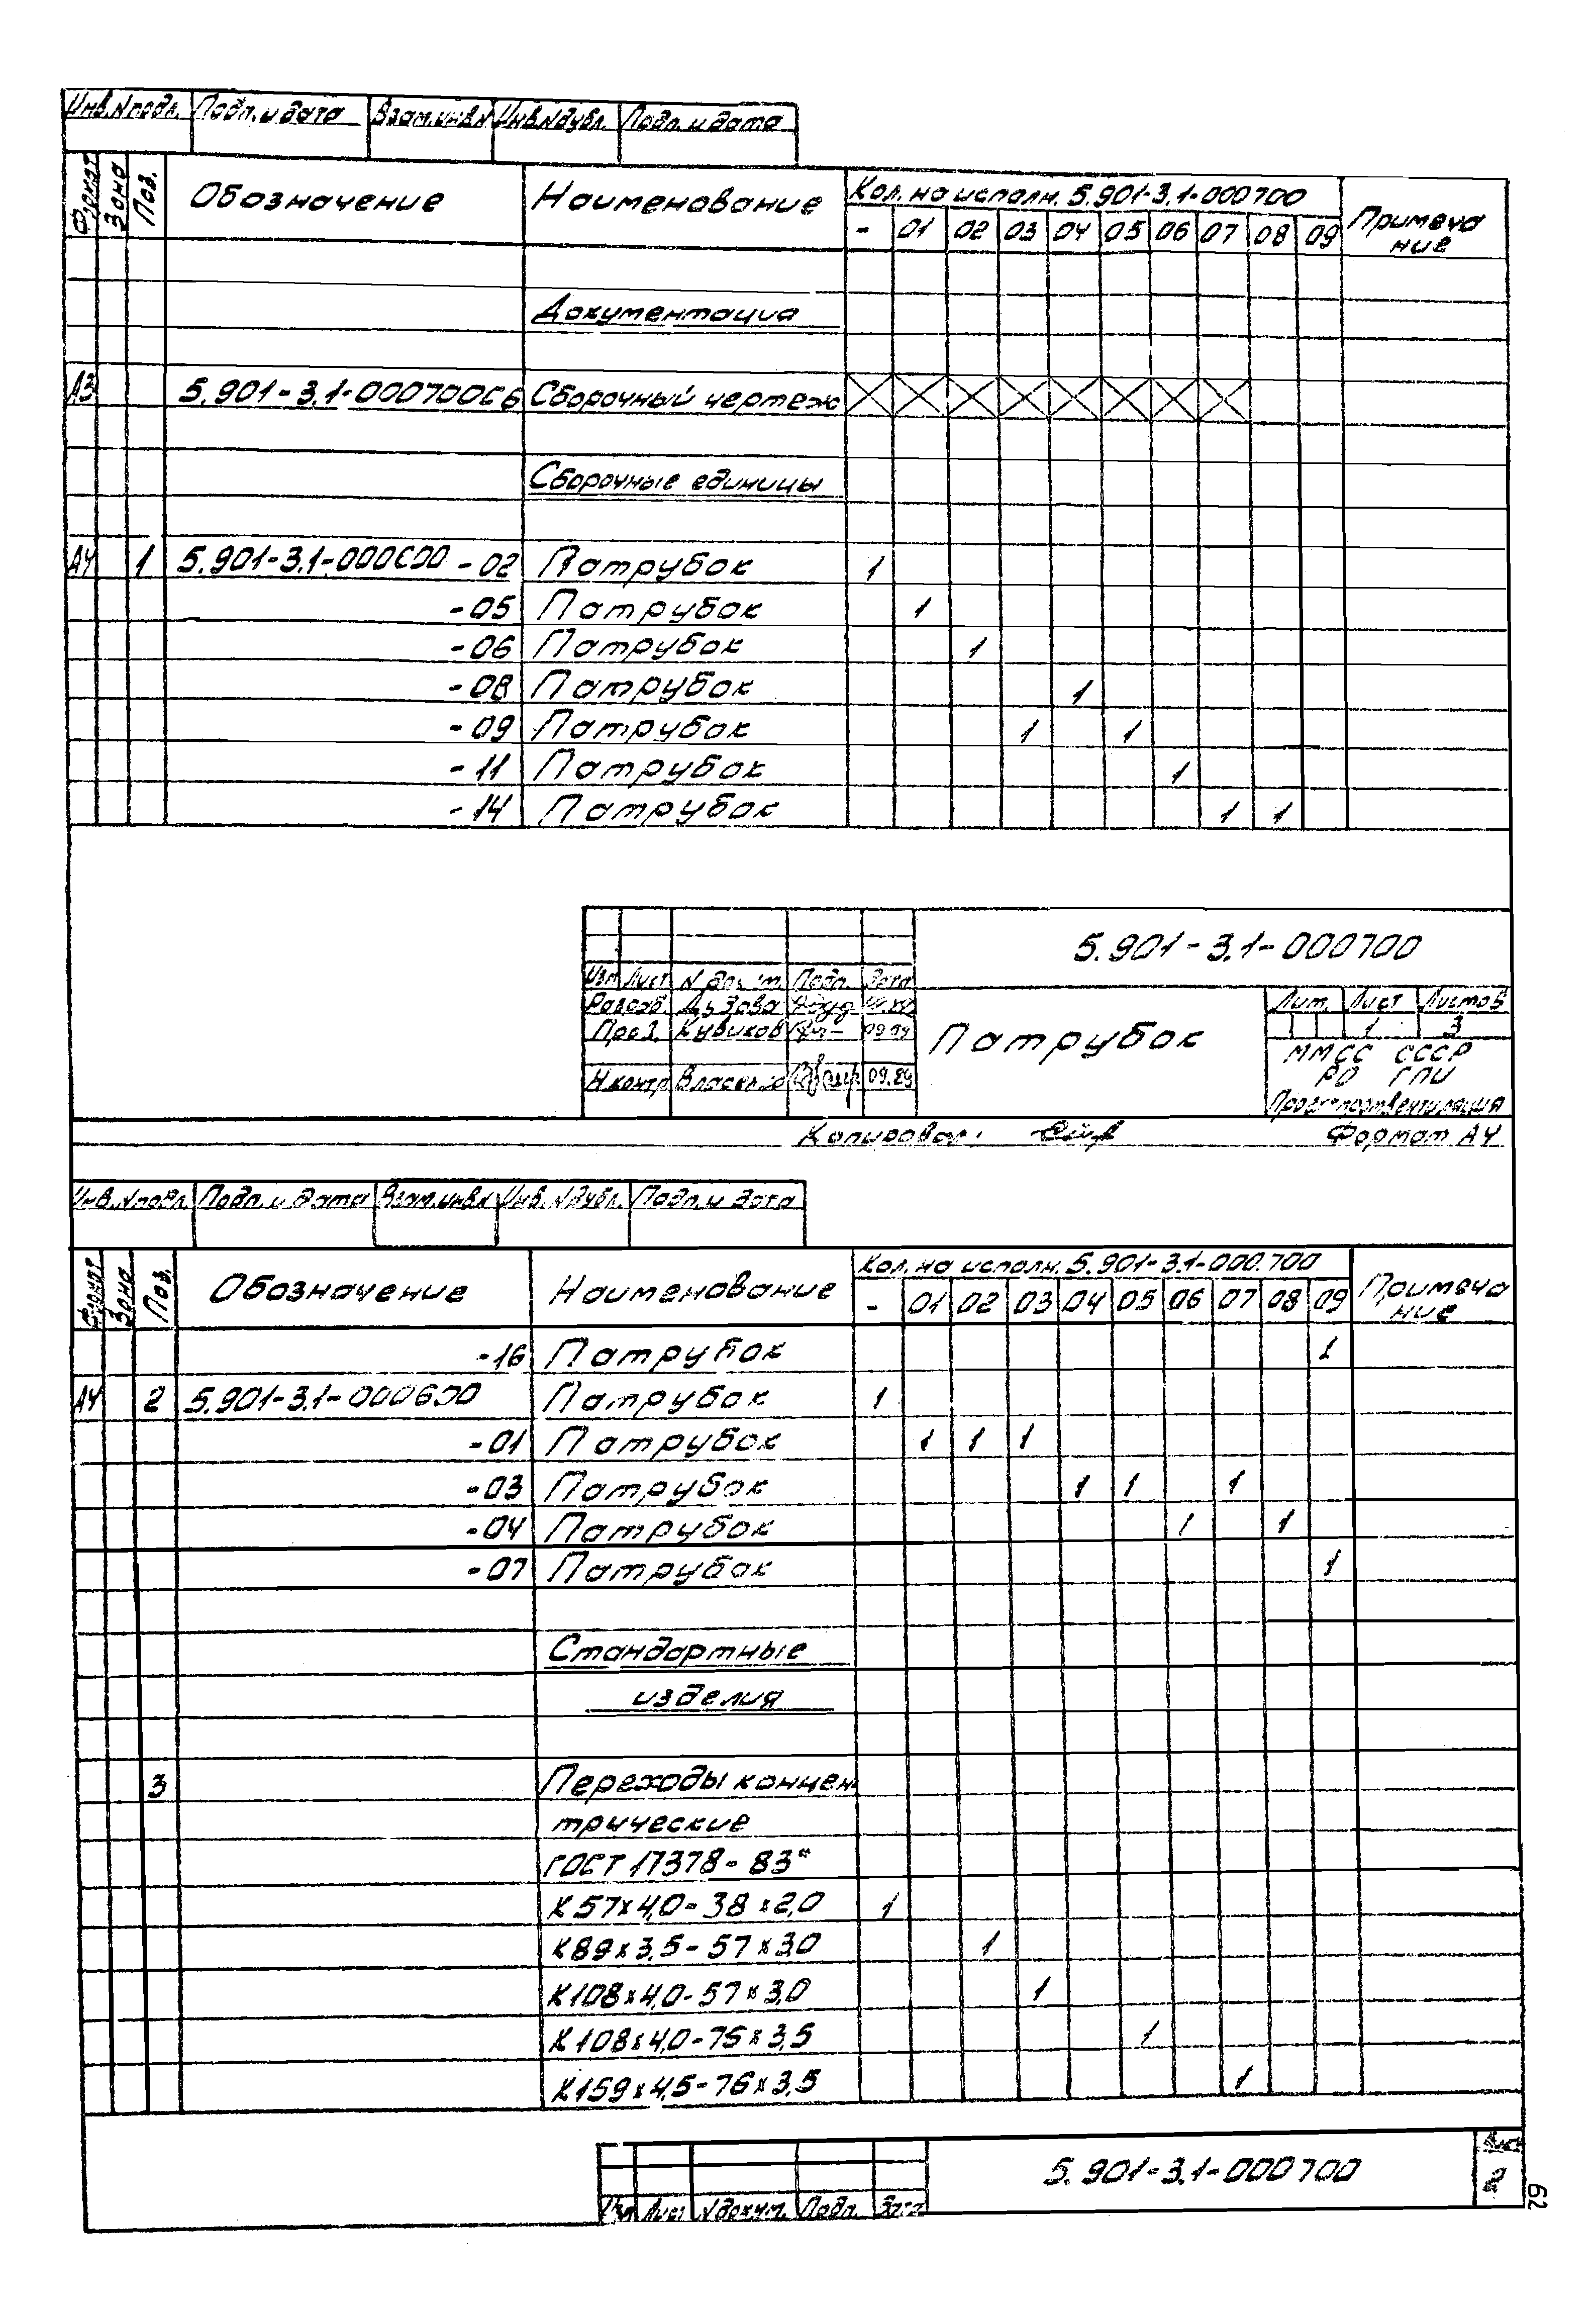 Инв.N подл. Подп. и дата Взам.инв.N Инв.N дубл. Подп. и дата
Формат Зона Поз. Обозначение Наименование Кол. на исполн. 5.901-3.1-000700 Примеча
- 01 02 03 04 05 06 07 08 09 ние
Документация
А3 5.901-3.1-000700СБ Сборочный чертеж
Сборочные единицы
А4 1 5.901-3.1-000600 -02 Патрубок 1
-05 Патрубок 1
-06 Патрубок 1
-08 Патрубок 1
-09 Патрубок 1 1
-11 Патрубок 1
-14 Патрубок 1 1
5.901-3.1-000700
Изм Лист Подп. Дата
Разраб.
Пров. Кувиков 09.89
Н.контр. 09.89
Патрубок
Лит. Лист Листов
1 3
ММСС СССР
РО ГПИ
Проектпромвентиляция
Копировал: Формат А4
Инв.N подл. Подп. и дата Взам.инв.N Инв.N дубл. Подп. и дата
Формат Зона Поз. Обозначение Наименование Кол. на исполн. 5.901-3.1-000.700 Примеча
- 01 02 03 04 05 06 07 08 09 ние
-16 Патрубок 1
А4 2 5.901-3.1-000600 Патрубок 1
-01 Патрубок 1 1 1
-03 Патрубок 1 1 1
-04 Патрубок 1 1
-07 Патрубок 1
Стандартные
изделия
3 Переходы концен
трические
ГОСТ 17378-83*
К57х4,0-38х2,0 1
К89х3,5-57х3,0 1
К108х4,0-57х3,0 1
К108х4,0-76х3,5 1
К159х4,5-76х3,5 1
5.901-3.1-000700
Лист
2
Изм Лист N докум. Подп. Дата
62